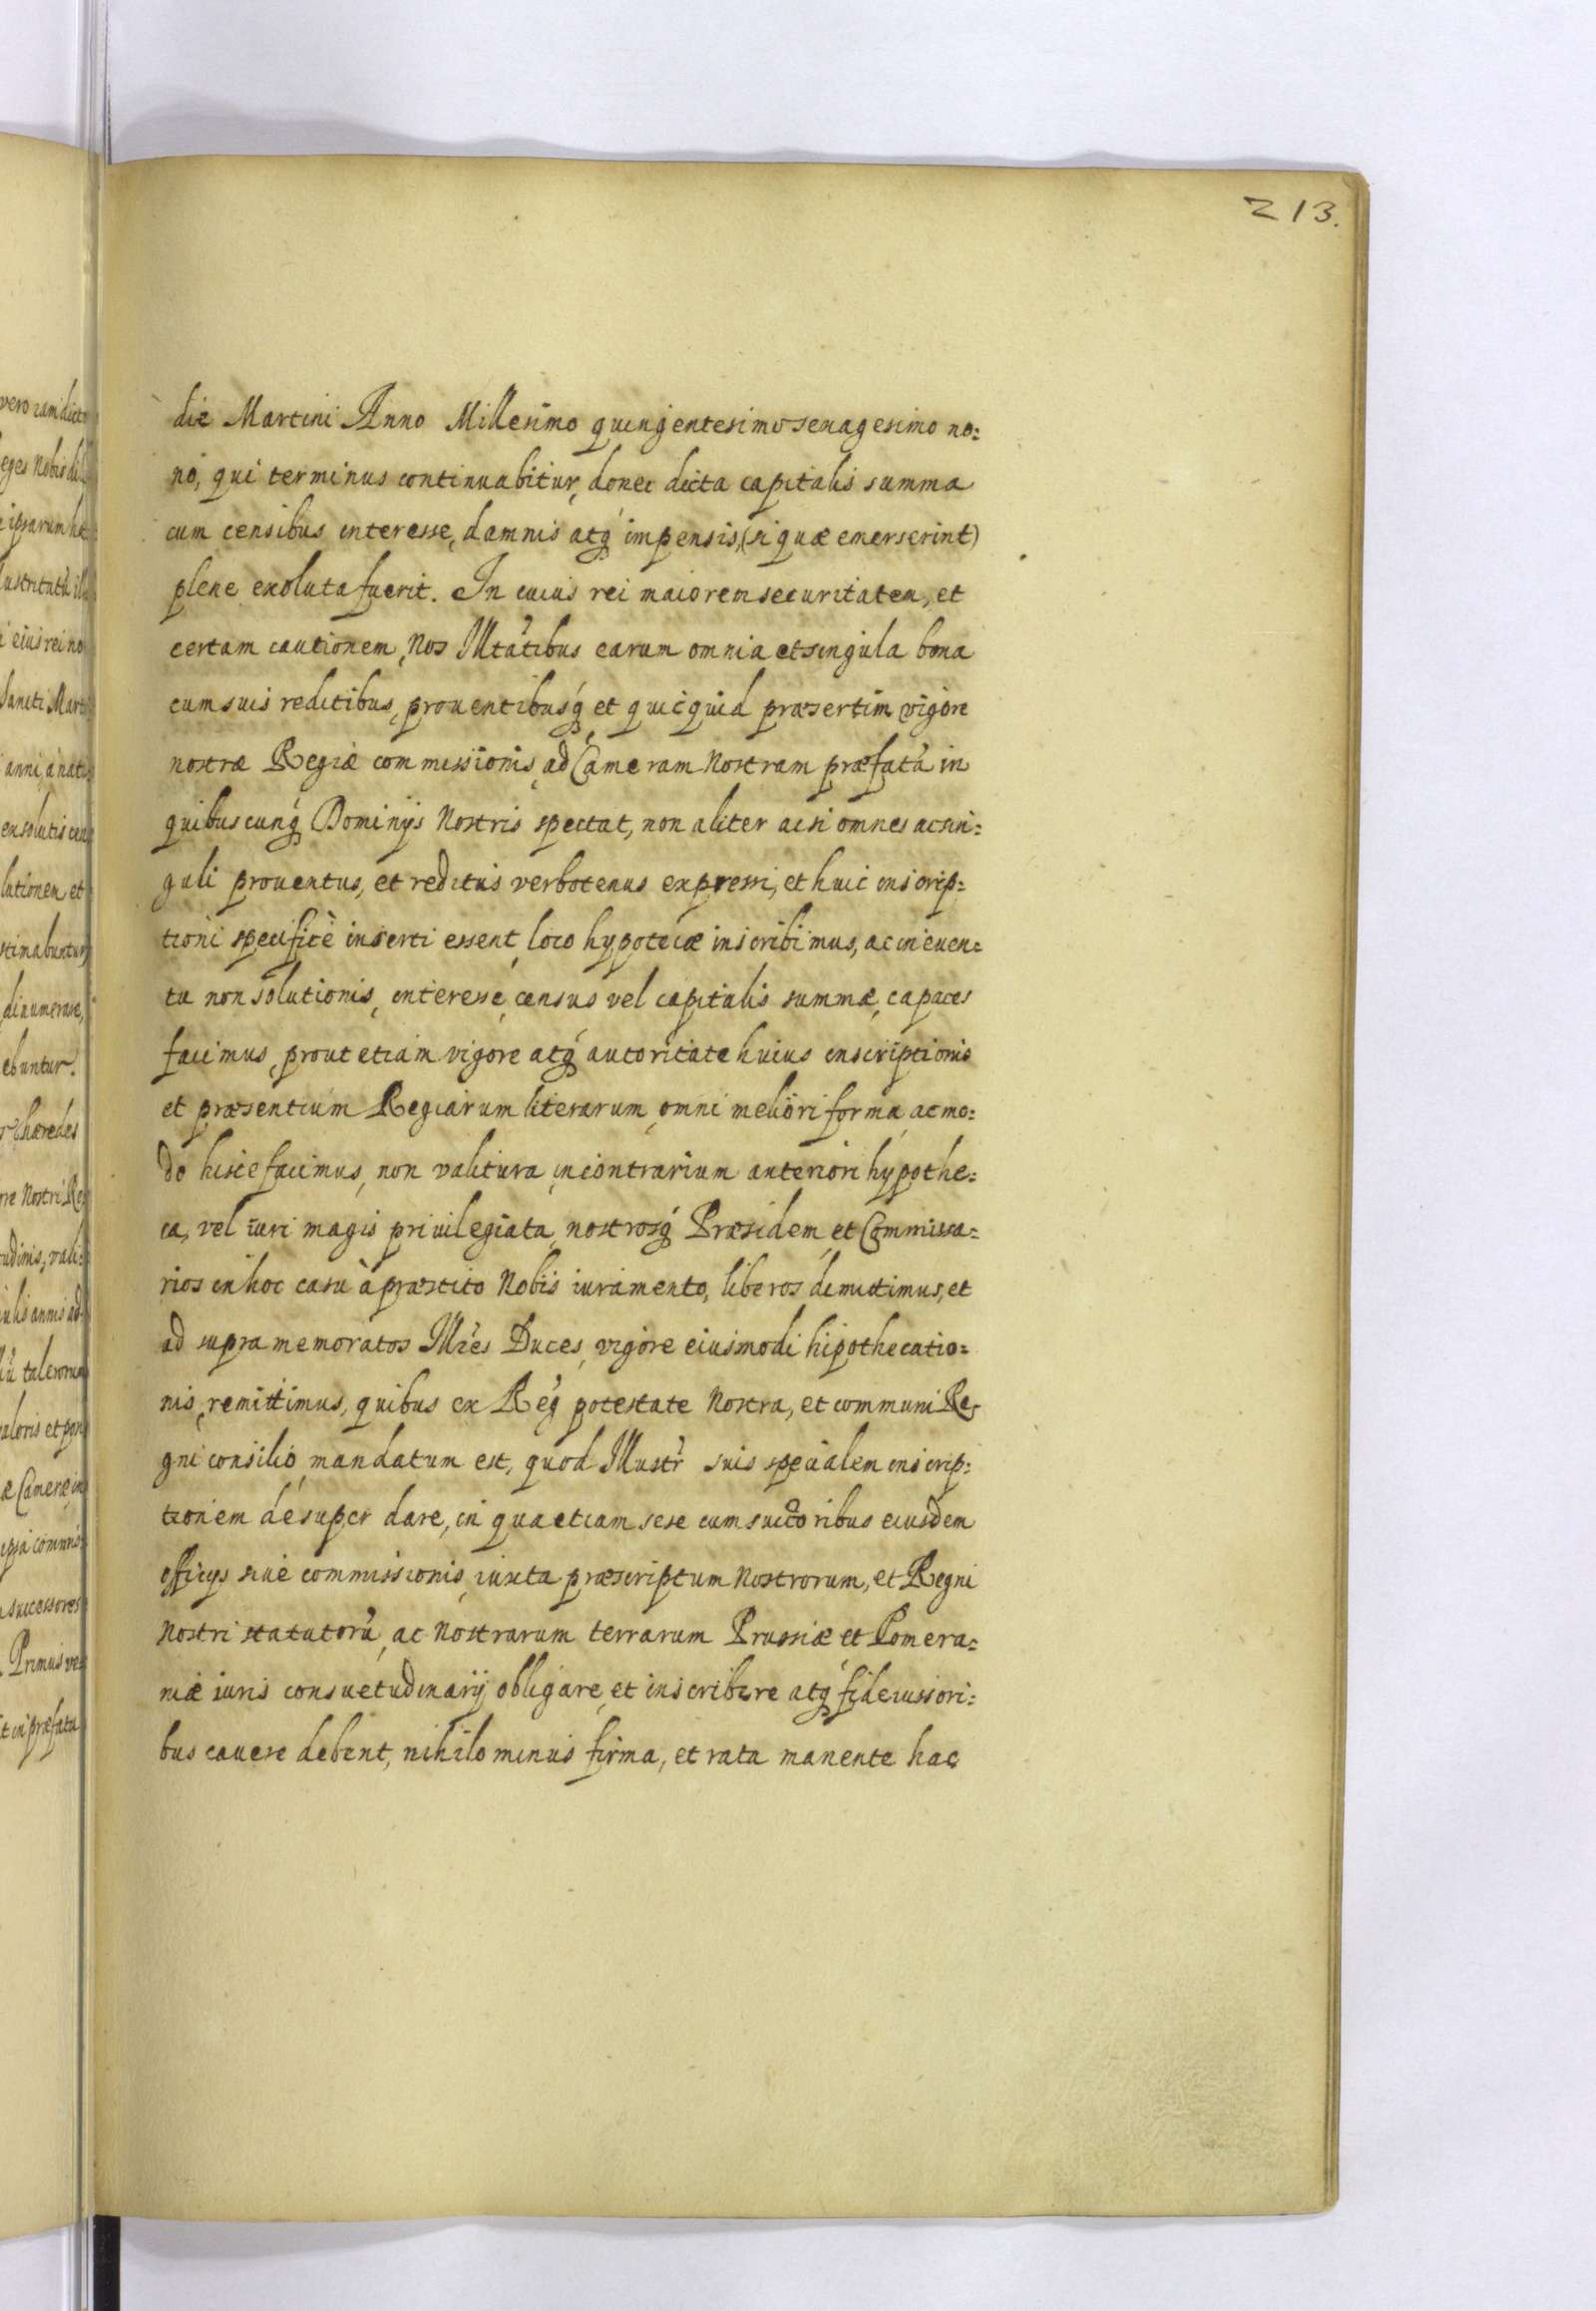 213.
die Martini Anno Millesimo quingentesimo sexagesimo no=
no, qui terminus continuabitur, donec dicta capitalis summa
cum censibus interesse, damnis atq́ impensis, (si quæ emerserint)
plene exoluta fuerit. In cuius rei maiorem securitatem, et
certam cautionem, Nos Illtãtibus earum omnia et singula bona
cum suis reditibus, prouentibusq́ et quicquid præsertim vigore
nostræ Regiæ commissionis, ad Cameram Nostram præfatã in
quibuscunq́ Dominijs Nostris spectat, non aliter ac si omnes ac sin=
guli prouentus, et reditus verbotenus expressi, et huic inscrip=
tioni specificè inserti essent, loco hypotecæ inscribimus, ac in euen=
tu non solutionis, interesse, census vel capitalis summæ, capaces
facimus, prout etiam vigore atq́ autoritate huius inscriptionis
et præsentium Regiarum literarum, omni meliori forma, ac mo=
do hisce facimus, non valitura in contrarium anteriori hypothe=
ca, vel iuri magis priuilegiata, nostrosq́ Præsidem, et Commissa=
rios in hoc casu à præstito Nobis iuramento, liberos dimittimus, et
ad supra memoratos Illr̃es Duces, vigore eiusmodi hipothecatio=
nis, remittimus, quibus ex Reg̃ potestate Nostra, et communi Re=
gni consilio, mandatum est, quod Illustr̃ suis specialem inscrip=
tionem désuper dare, in qua etiam sese cum succoribus eiusdem
officijs siue commissionis, iuxta præscriptum Nostrorum, et Regni
Nostri statutorũ, ac Nostrarum terrarum Prussiæ et Pomera=
niæ iuris consuetudinarij obligare, et inscribere atq́ fideiussori=
bus cauere debent, nihilo minus firma, et rata manente hac